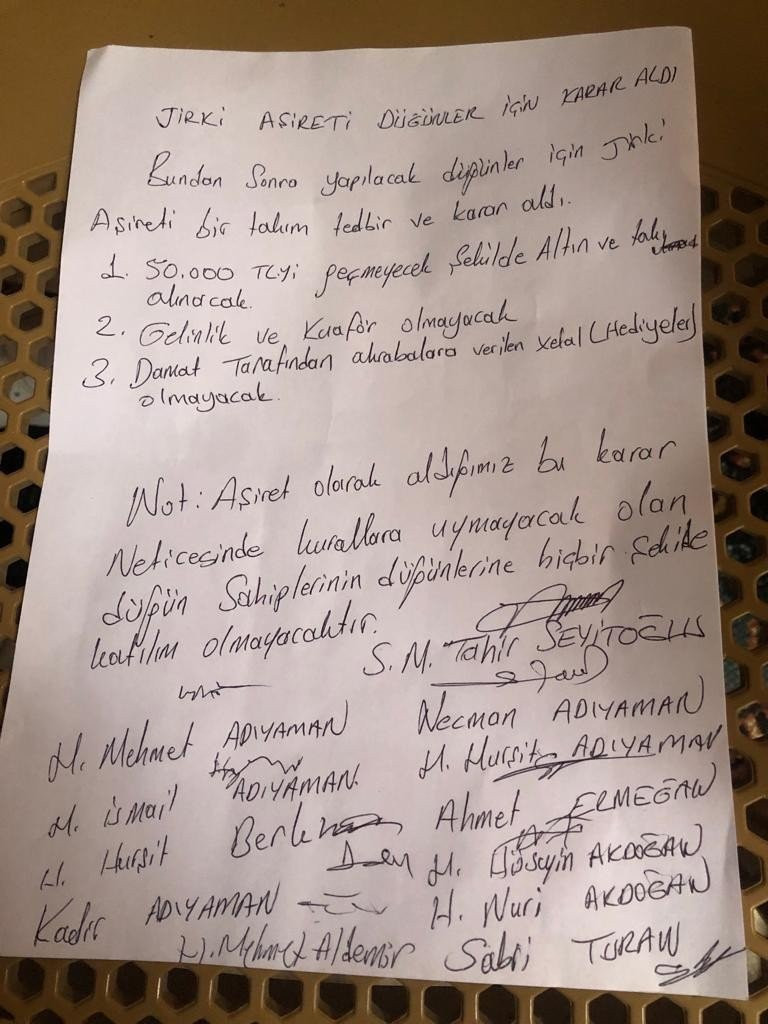 JİRKİ AŞİRETİ DÜĞÜNLER İÇİN KARAR ALDI
Bundan Sonra yapılacak düğünler için Jirki
Aşireti bir takım tedbir ve karar aldı.
1. 50.000 TLyi geçmeyecek Şekilde Altın ve takı
alınacak.
2. Gelinlik ve Kuaför olmayacak
3. Damat Tarafından akrabalara verilen Xelat (Hediyeler)
olmayacak.
Not: Aşiret olarak aldığımız bu karar
Neticesinde kurallara uymayacak olan
düğün Sahiplerinin düğünlerine hiçbir Şekilde
katılım olmayacaktır.
S. M. Tahir SEYİTOĞLU
H. Mehmet ADIYAMAN Necman ADIYAMAN
H. İsmail ADIYAMAN. H. Hurşit ADIYAMAN
H. Hurşit Ahmet ERMEĞAN
H. Hüseyin AKDOĞAN
Kadir ADIYAMAN H. Nuri AKDOĞAN
H. Mehmet Aldemir Sabri TURAN